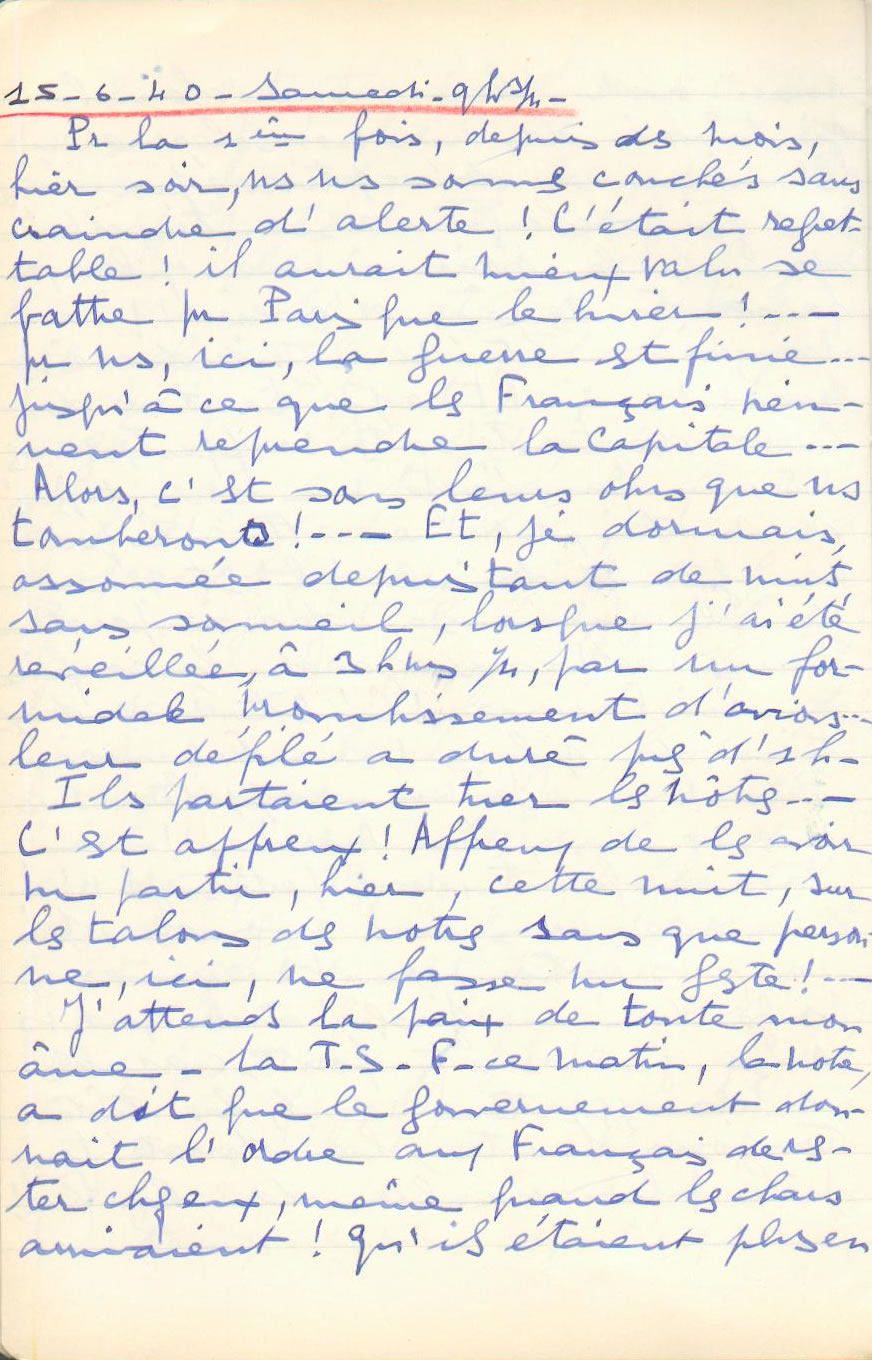 15-6-40- Samedi- 9h
Pr la 1ère fois, depuis des mois,
hier soir, ns ns sommes couchés sans
craindre d'alerte ! C'était regret-
table ! il aurait mieux valu se
battre pr Paris que le livrer ! ---
pr ns, ici, la guerre est finie ---
jusqu'à ce que les Français vien-
nent reprendre la capitale ---
Alors, c'est sous leurs obus que ns
tomberons ! --- Et, je dormais,
assommée depuis tant de nuits
sans sommeil, lorsque j'ai été
réveillée, à 3h, par un for-
midable vrombissement d'avions --
leur défilé a duré jusqu'à d'1h-
Ils partaient tuer les nôtres ---
C'est affreux ! Affreux de les voir
partir, hier, cette nuit, sur
les talons des notres sans que person-
ne, ici, ne fasse un geste ! ---
J'attends la paix de toute mon
âme - la T.S.F. ce matin, la note,
a dit que le gouvernement don-
nait l'ordre aux Français de res-
ter chez eux, même quand les chars
arrivaient ! Qu'ils étaient plus en